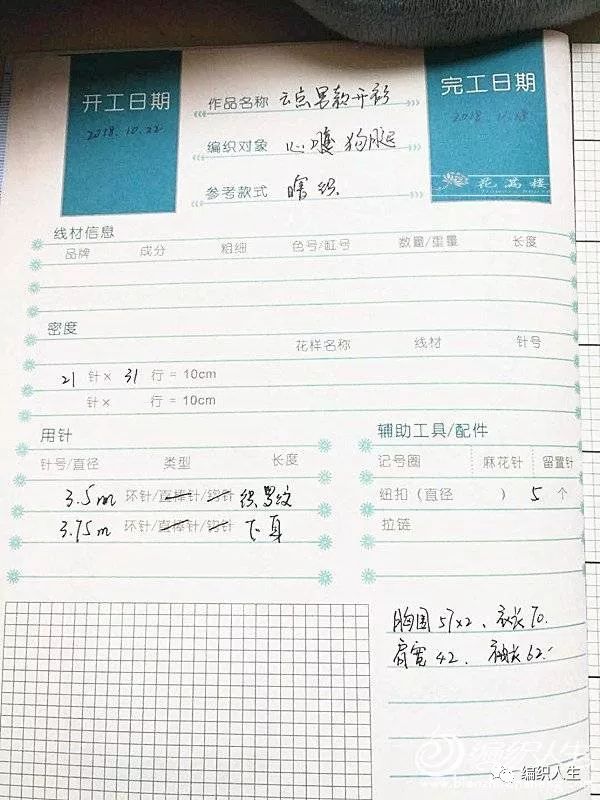 开工日期
2018.10.22
作品名称 云点男款开衫
完工日期
2018.11.18
编织对象
参考款式 瞎织
花笃楼
线材信息
品牌 成分 粗细 色号/缸号 数量/重量 长度
密度
花样名称 线材 针号
21 针× 31 行 = 10cm
针× 行 = 10cm
用针
针号/直径 类型 长度
3.5m 环针/直棒针/钩针 织罗纹
3.75m 环针/直棒针/钩针 下身
辅助工具/配件
记号圈 麻花针 留置针
纽扣（直径 ） 5 个
拉链
胸围57×2、衣长70.
肩宽42、袖长62.
编织人生
编织人生